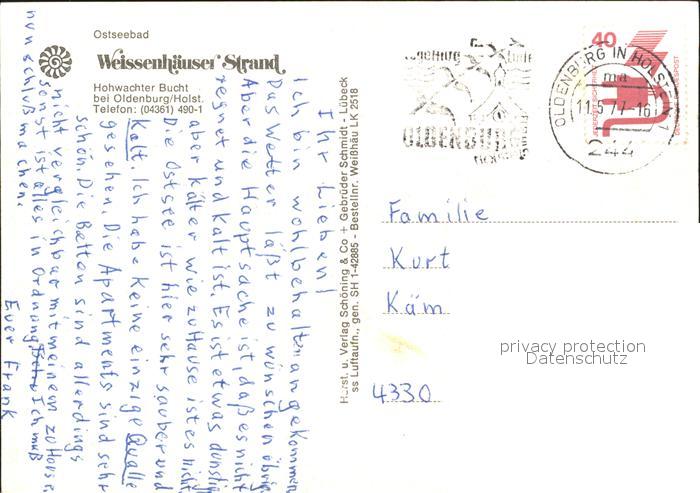 Ostseebad
Weissenhäuser Strand
Hohwachter Bucht
bei Oldenburg/Holst.
Telefon: (04361) 490-1
Ihr Lieben!
Ich bin wohlbehalten angekommen.
Das Wetter läßt zu wünschen übrig.
Aber die Hauptsache ist, daß es nicht
regnet und kalt ist. Es ist etwas dunstig
aber kälter wie zu Hause ist es nicht.
Die Ostsee ist hier sehr sauber und
kalt. Ich habe keine einzige Qualle
gesehen. Die Apartments sind sehr
schön. Die Betten sind allerdings
nicht vergleichbar mit meinem zu Hause.
Sonst ist alles in Ordnung. Ich muß
nun schluß machen.
Euer Frank
Horst. u. Verlag Schöning & Co + Gebrüder Schmidt - Lübeck
ss Luftaufn., gen. SH 1-42885 - Bestellnr. Weißhäu LK 2518
OLDENBURG
40
DEUTSCHE BUNDESPOST
OLDENBURG IN HOLSTEIN 1
ma
11.-5.77-16
244
Familie
Kurt
Käm
4330
privacy protection
Datenschutz